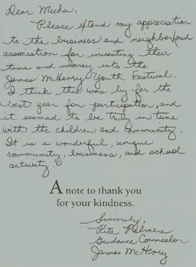 Dear Micha,
Please extend my appreciation
to the business and neighborhood
association for investing their
time and money into the
James McHenry Youth Festival.
I think this was by far the
best year for participation, and
it seemed to be truly in tune
with the children and community.
It is a wonderful, unique
community, business, and school
activity!
A note to thank you
for your kindness.
Sincerely,
Rita Palmer
Guidance Counselor
James McHenry